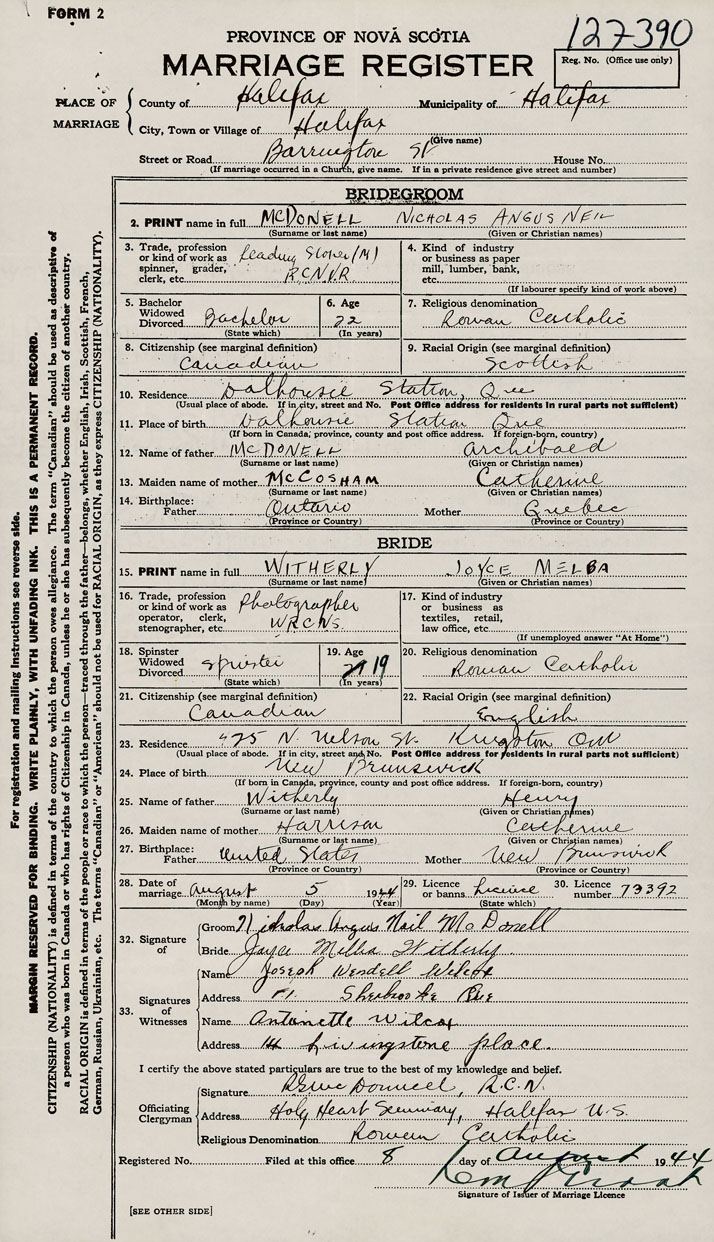 FORM 2
127390
PROVINCE OF NOVA SCOTIA
MARRIAGE REGISTER
Reg. No. (Office use only)
PLACE OF MARRIAGE
County of Halifax Municipality of Halifax
City, Town or Village of Halifax
(Give name)
Street or Road Barrington St House No.
(If marriage occurred in a Church, give name. If in a private residence give street and number)
BRIDEGROOM
2. PRINT name in full McDONELL NICHOLAS ANGUS NEIL
(Surname or last name) (Given or Christian names)
3. Trade, profession or kind of work as spinner, grader, clerk, etc. Leading Stoker (M) RCNVR
4. Kind of industry or business as paper mill, lumber, bank, etc.
(If labourer specify kind of work above)
5. Bachelor Widowed Divorced Bachelor (State which)
6. Age 22 (In years)
7. Religious denomination Roman Catholic
8. Citizenship (see marginal definition) Canadian
9. Racial Origin (see marginal definition) Scottish
10. Residence Dalhousie Station, Que
(Usual place of abode. If in city, street and No. Post Office address for residents in rural parts not sufficient)
11. Place of birth Dalhousie Station Que
(If born in Canada, province, county and post office address. If foreign-born, country)
12. Name of father McDONELL Archibald
(Surname or last name) (Given or Christian names)
13. Maiden name of mother McCOSHAM Catherine
(Surname or last name) (Given or Christian names)
14. Birthplace: Father Ontario Mother Quebec
(Province or Country) (Province or Country)
BRIDE
15. PRINT name in full WITHERLY JOYCE MELBA
(Surname or last name) (Given or Christian names)
16. Trade, profession or kind of work as operator, clerk, stenographer, etc. Photographer W.R.C.N.S.
17. Kind of industry or business as textiles, retail, law office, etc.
(If unemployed answer "At Home")
18. Spinster Widowed Divorced Spinster (State which)
19. Age 19 (In years)
20. Religious denomination Roman Catholic
21. Citizenship (see marginal definition) Canadian
22. Racial Origin (see marginal definition) English
23. Residence N. Nelson St. Kingston Ont
(Usual place of abode. If in city, street and No. Post Office address for residents in rural parts not sufficient)
24. Place of birth New Brunswick
(If born in Canada, province, county and post office address. If foreign-born, country)
25. Name of father Witherly Henry
(Surname or last name) (Given or Christian names)
26. Maiden name of mother Harrison Catherine
(Surname or last name) (Given or Christian names)
27. Birthplace: Father United States Mother New Brunswick
(Province or Country) (Province or Country)
28. Date of marriage August 5 1944
(Month by name) (Day) (Year)
29. Licence or banns Licence (State which)
30. Licence number 73392
32. Signature of
Groom Nicholas Angus Neil McDonell
Bride Joyce Melba Witherly.
33. Signatures of Witnesses
Name Joseph Wendell Wilcox
Address Sherbrooke Ave
Name Antoinette Wilcox
Address 14 Livingstone place.
I certify the above stated particulars are true to the best of my knowledge and belief.
Officiating Clergyman
Signature R.C.N.
Address Holy Heart Seminary, Halifax N.S.
Religious Denomination Roman Catholic
Registered No. Filed at this office 8 day of August 1944
Signature of Issuer of Marriage Licence
[SEE OTHER SIDE]
For registration and mailing instructions see reverse side.
MARGIN RESERVED FOR BINDING. WRITE PLAINLY, WITH UNFADING INK. THIS IS A PERMANENT RECORD.
CITIZENSHIP (NATIONALITY) is defined in terms of the country to which the person owes allegiance. The term "Canadian" should be used as descriptive of
a person who was born in Canada or who has rights of Citizenship in Canada, unless he or she has subsequently become the citizen of another country.
RACIAL ORIGIN is defined in terms of the people or race to which the person—traced through the father—belongs, whether English, Irish, Scottish, French,
German, Russian, Ukrainian, etc. The terms "Canadian" or "American" should not be used for RACIAL ORIGIN, as they express CITIZENSHIP (NATIONALITY).